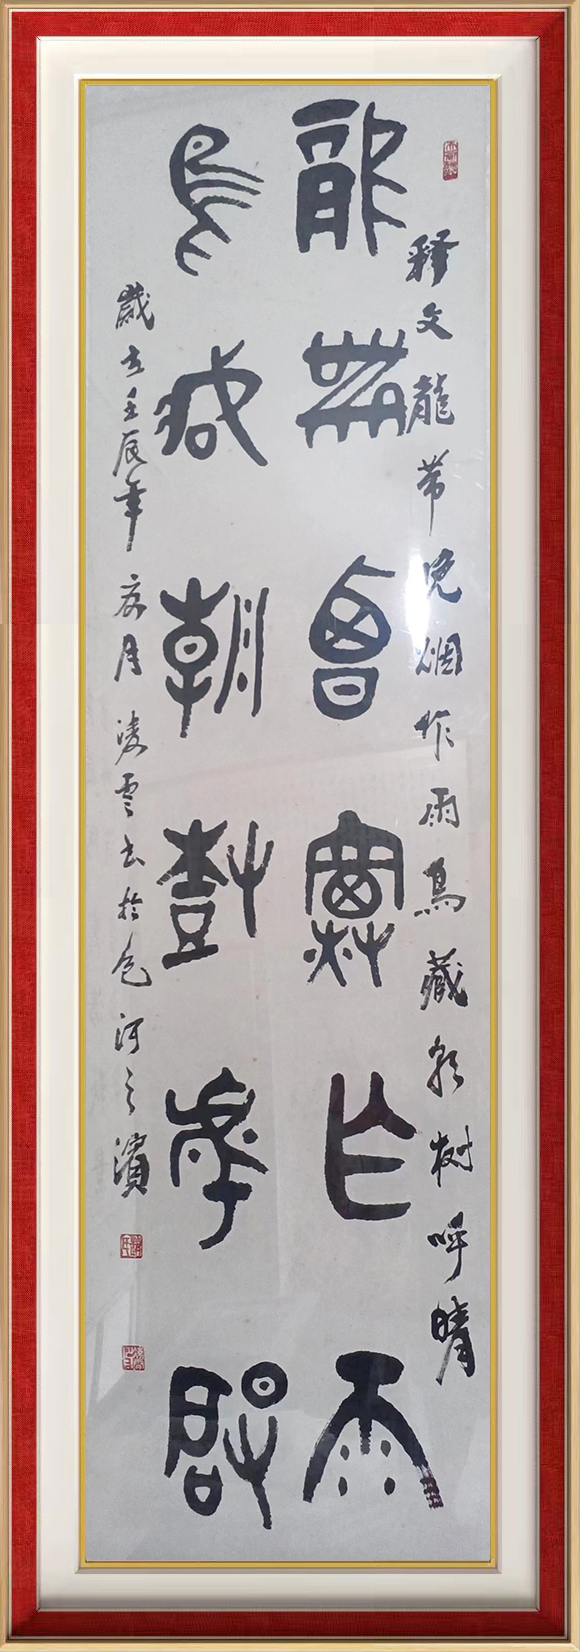 释文龍带晚烟作雨鳥藏朝树呼晴
龍帶晚煙作雨
鳥藏朝樹呼晴
歲在壬辰年夏月凌雲书於包河之濱